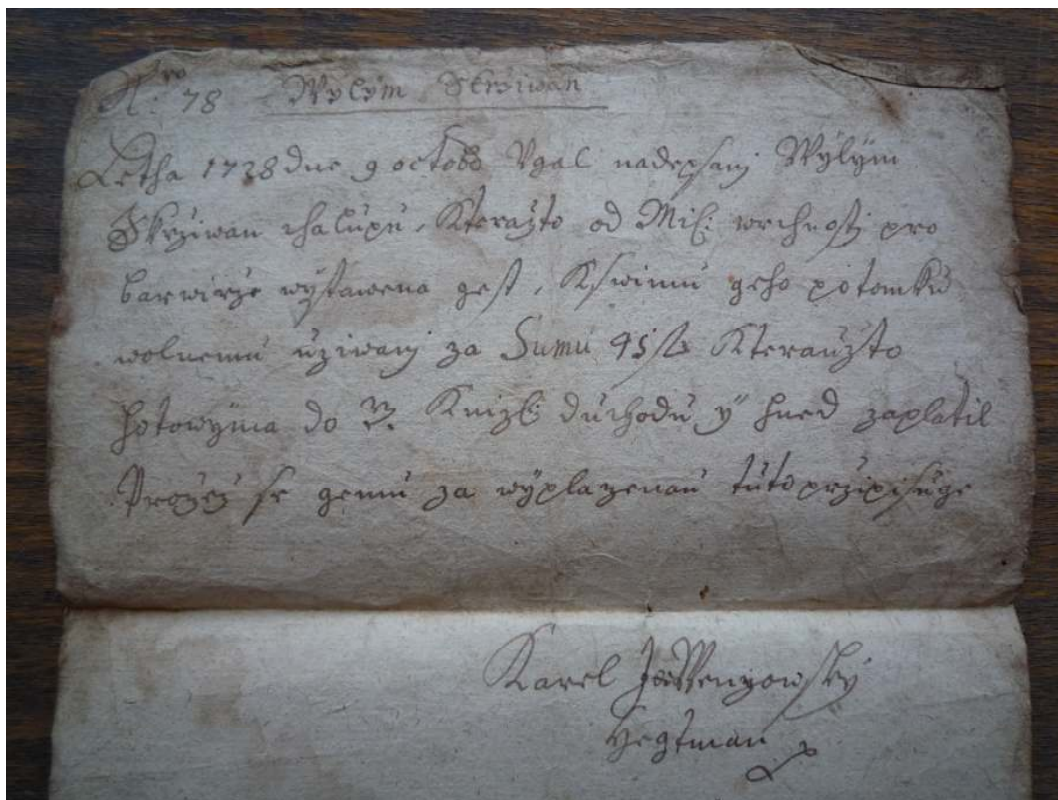 Nro: 78 Wylým Skrziwan
Letha 1728 dne 9 octobr Ugal nadepsany Wýlým
Skrziwan chalupu, Kteražto od Mil: wrchnosti pro
barwirze wystawena gest, K swimu geho potomku
wolnemu uziwany za Sumu 45 Kteraužto
hotowýma do Knizl: duchodu ÿ hned zaplatil
Prožež se gemu za wýplazenau tuto przipisuge
Karel
Hegtman